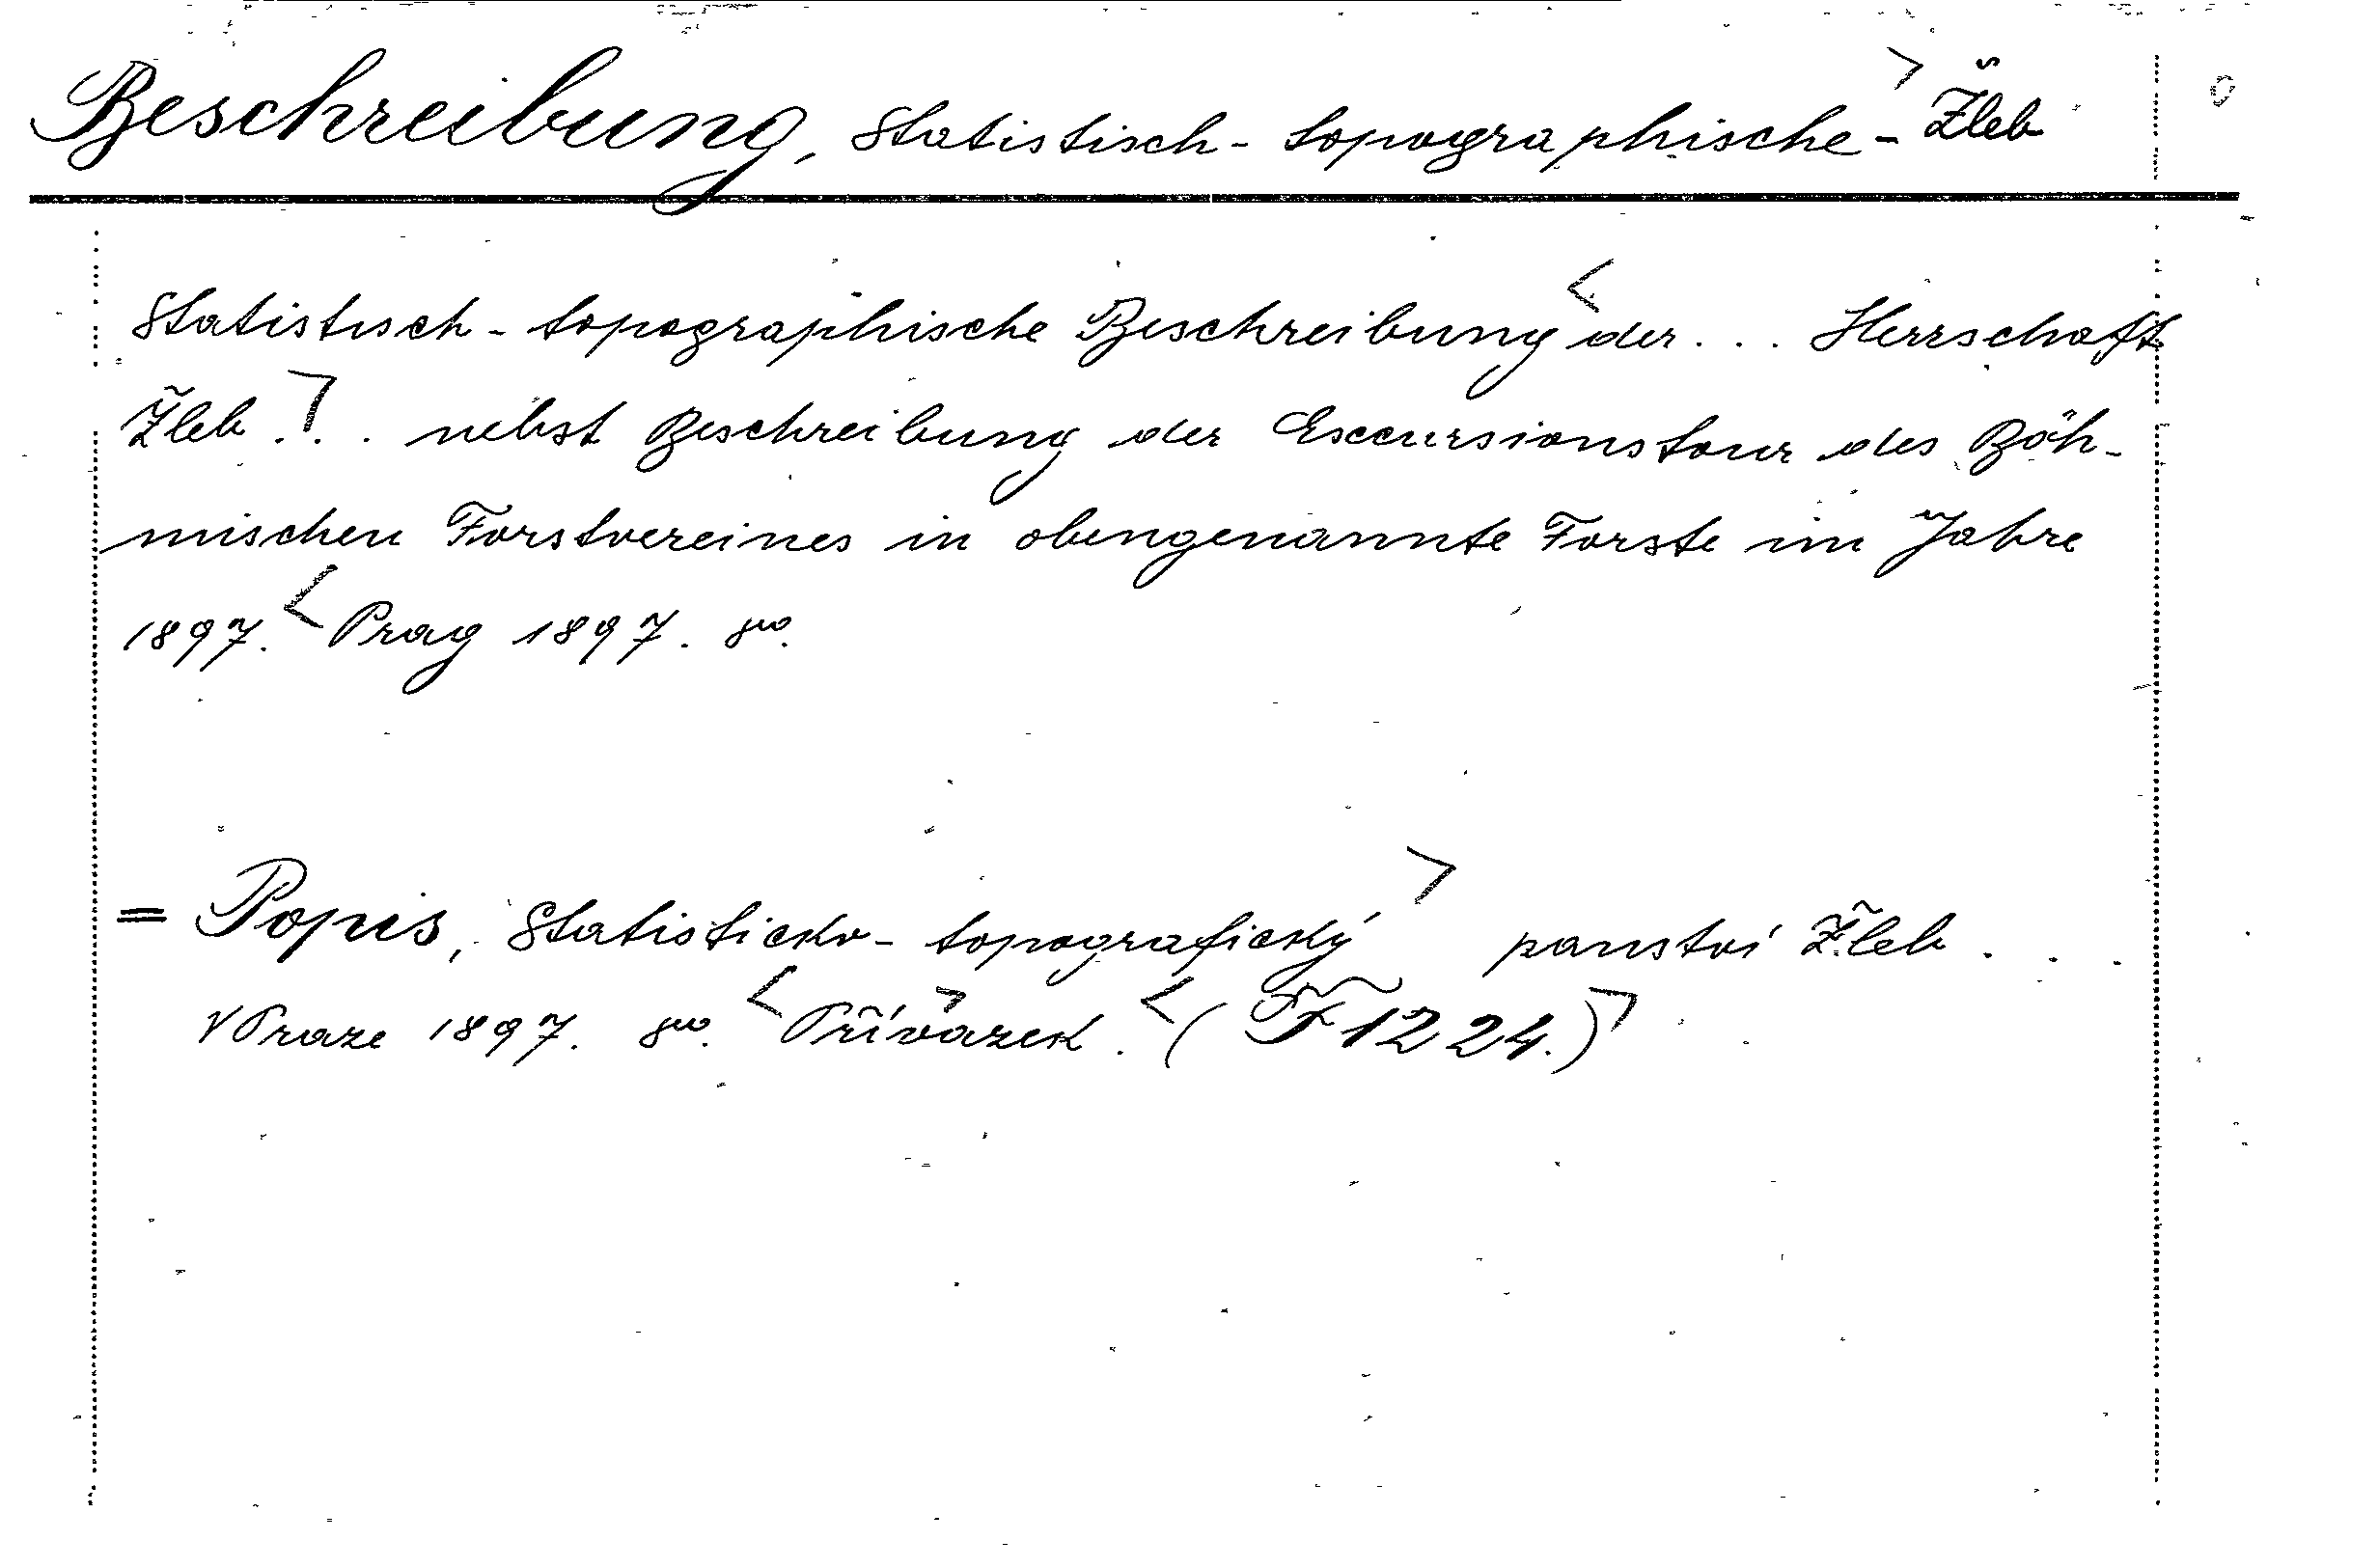 Beschreibung, Statistisch-topographische - Žleb
Statistisch-topographische Beschreibung der... Herrschaft
Žleb... nebst Beschreibung der Excursionstour des Böh-
mischen Forstvereines in obengenannte Forste im Jahre
1897. Prag 1897. 8vo.
= Popis, Statisticko-topografický panství Žleb...
v Praze 1897. 8vo. Přívazek. (F 1224.)